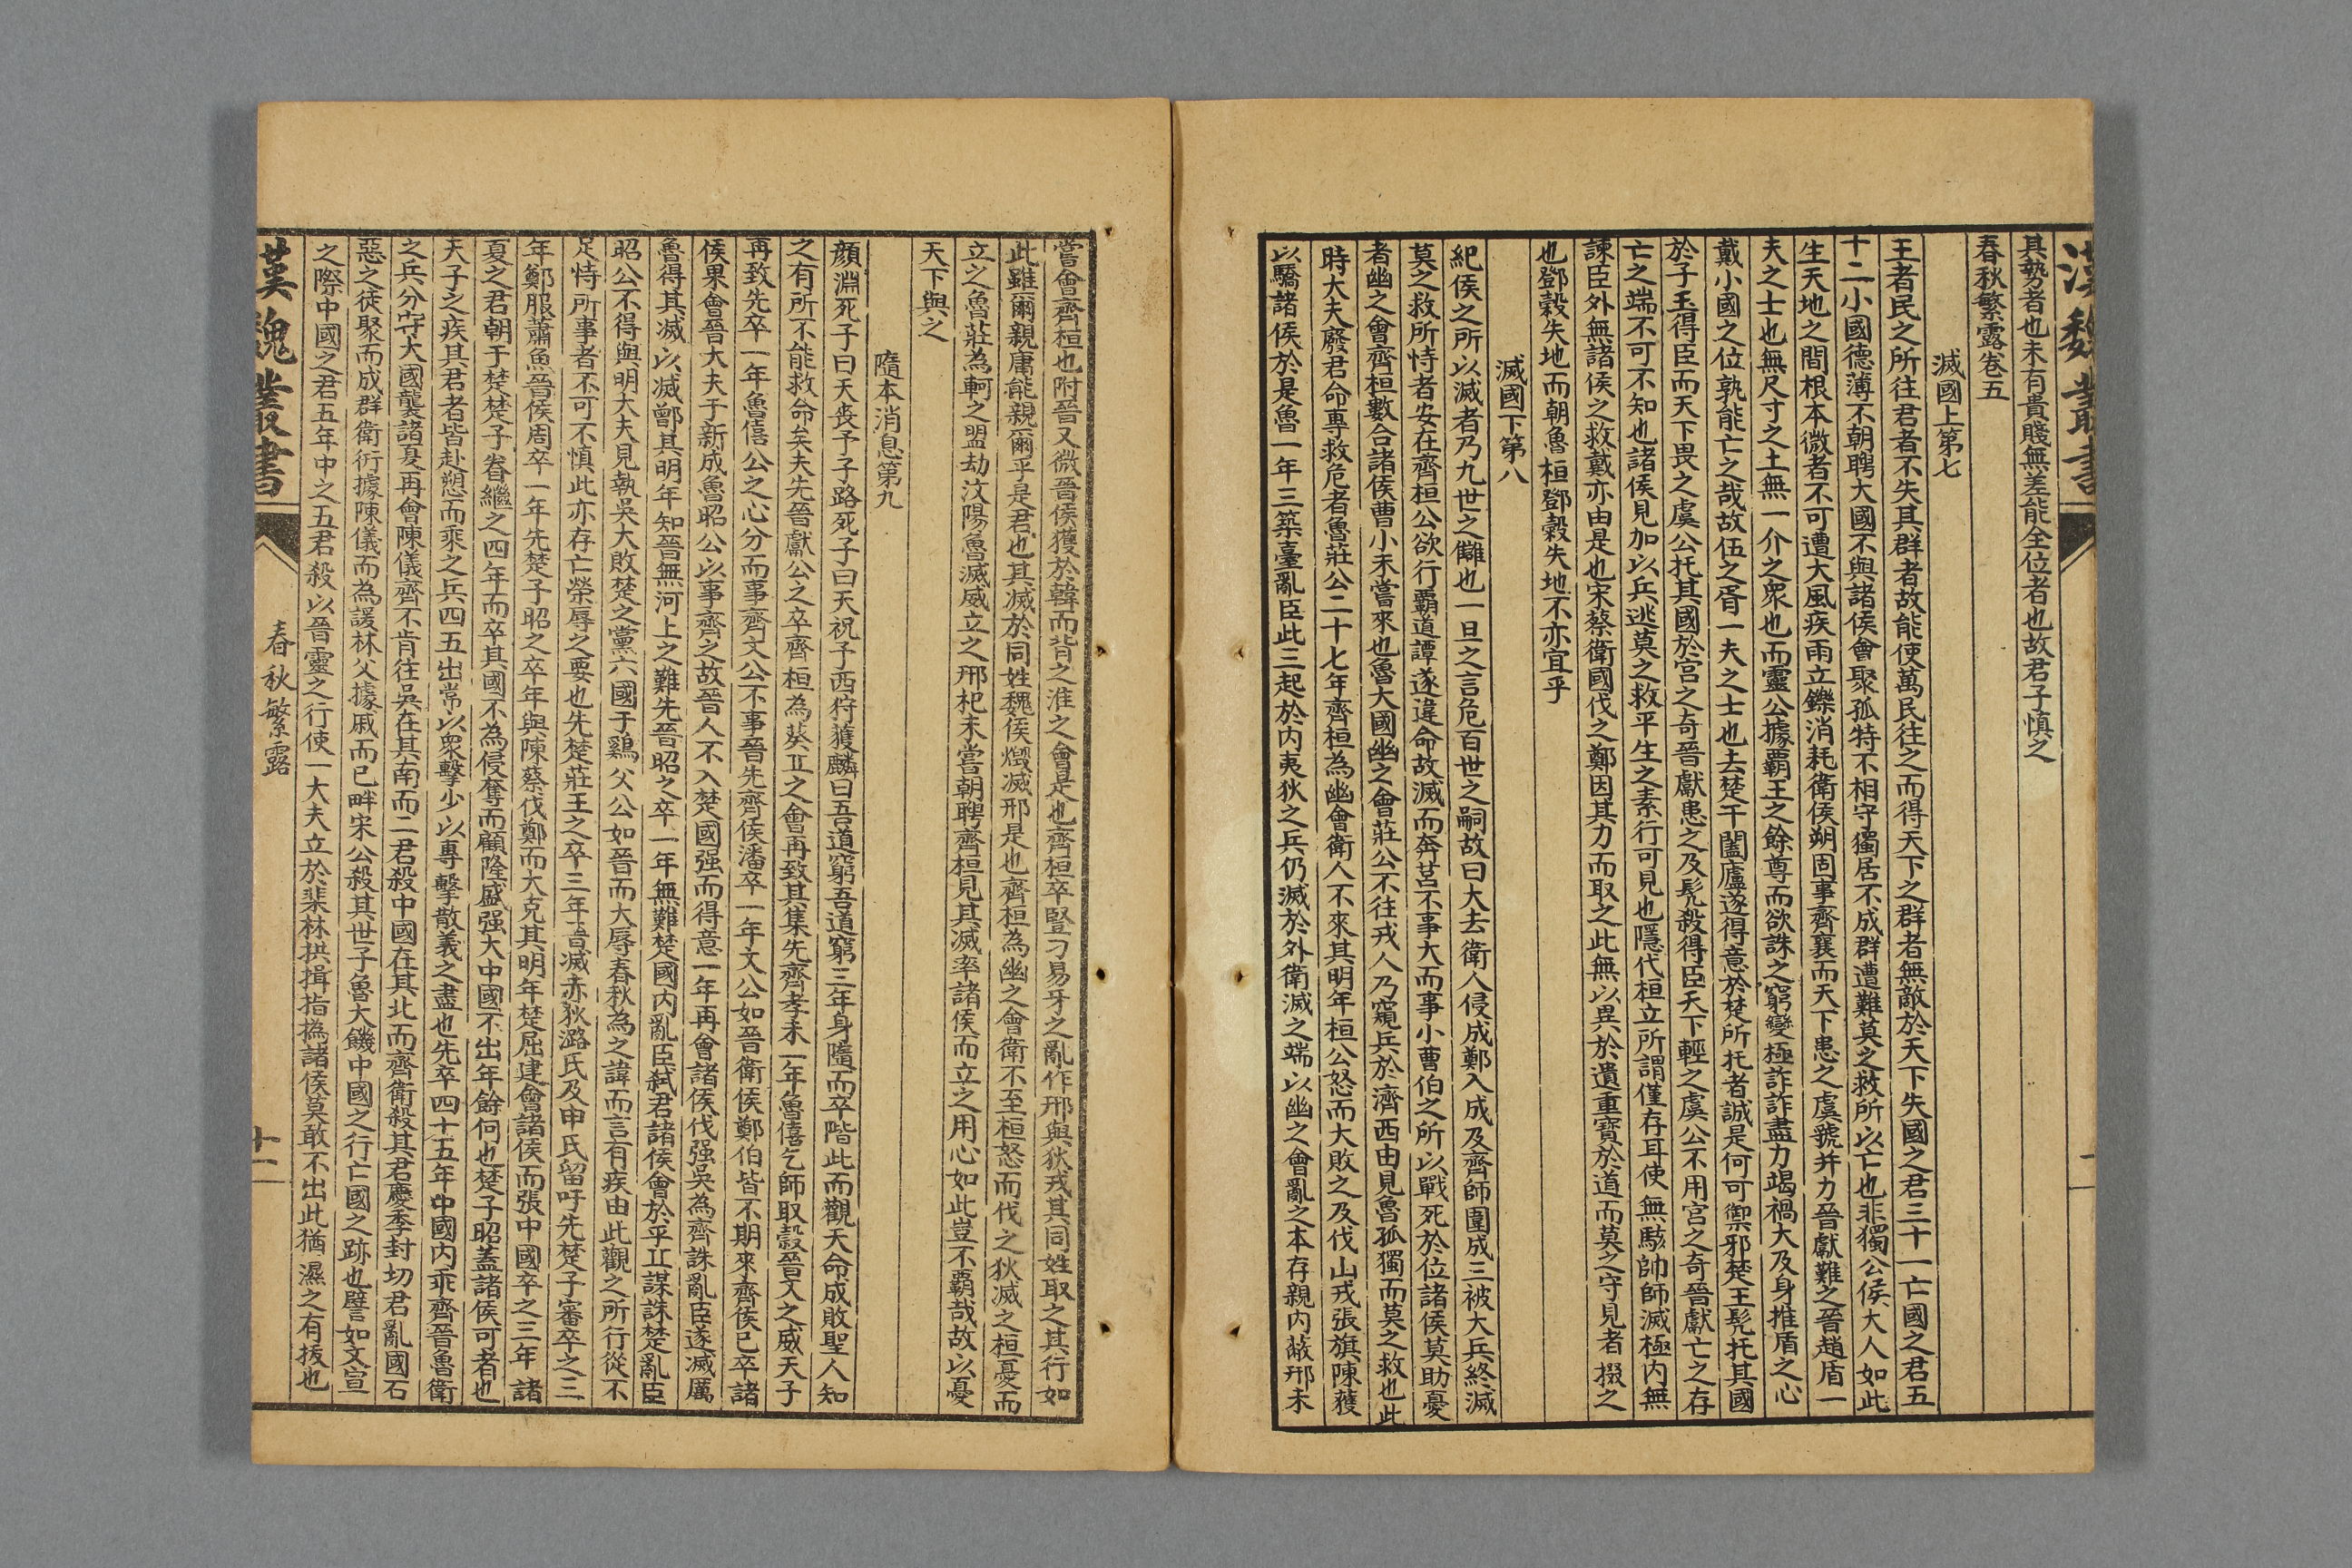 漢魏叢書
其勢者也未有貴賤無差能全位者也故君子慎之
春秋繁露卷五
滅國上第七
王者民之所往君者不失其群者故能使萬民往之而得天下之群者無敵於天下失國之君三十一亡國之君五
十二小國德薄不朝聘大國不與諸侯會聚孤特不相守獨居不成群遭難莫之救所以亡也非獨公侯大人如此
生天地之間根本微者不可遭大風疾雨立鑠消耗衛侯朔固事齊襄而天下患之虞虢并力晉獻難之晉趙盾一
夫之士也無尺寸之土無一介之眾也而靈公據霸王之餘尊而欲誅之窮變極詐詐盡力竭禍大及身推盾之心
戴小國之位孰能亡之哉故伍之胥一夫之士也去楚干闔廬遂得意於楚所托者誠是何可禦邪楚王髡托其國
於子玉得臣而天下畏之虞公托其國於宮之奇晉獻患之及髡殺得臣天下輕之虞公不用宮之奇晉獻亡之存
亡之端不可不知也諸侯見加以兵逃莫之救平生之素行可見也隱代桓立所謂僅存耳使無駭帥師滅極內無
諫臣外無諸侯之救戴亦由是也宋蔡衛國伐之鄭因其力而取之此無以異於遺重寶於道而莫之守見者掇之
也鄧穀失地而朝魯桓鄧穀失地不亦宜乎
滅國下第八
紀侯之所以滅者乃九世之讎也一旦之言危百世之嗣故曰大去衛人侵成鄭入成及齊師圍成三被大兵終滅
莫之救所恃者安在齊桓公欲行霸道譚遂違命故滅而奔莒不事大而事小曹伯之所以戰死於位諸侯莫助憂
者幽之會齊桓數合諸侯曹小未嘗來也魯大國幽之會莊公不往戎人乃窺兵於濟西由見魯孤獨而莫之救也此
時大夫廢君命專救危者魯莊公二十七年齊桓為幽會衛人不來其明年桓公怒而大敗之及伐山戎張旗陳獲
以驕諸侯於是魯一年三築臺亂臣比三起於內夷狄之兵仍滅於外衛滅之端以幽之會亂之本存親內蔽邢未
嘗會齊桓也附晉又微晉侯獲於韓而背之淮之會是也齊桓卒豎刁易牙之亂作邢與狄戎其同姓取之其行如
此雖爾親庸能親爾乎是君也其滅於同姓魏侯燬滅邢是也齊桓為幽之會衛不至桓怒而伐之狄滅之桓憂而
立之魯莊為軻之盟劫汶陽魯滅威立之邢杞未嘗朝聘齊桓見其滅率諸侯而立之用心如此豈不霸哉故以憂
天下與之
隨本消息第九
顏淵死子曰天喪予子路死子曰天祝予西狩獲麟曰吾道窮吾道窮三年身隨而卒階此而觀天命成敗聖人知
之有所不能救命矣夫先晉獻公之卒齊桓為葵丘之會再致其集先齊孝未一年魯僖乞師取穀晉文之威天子
再致先卒一年魯僖公之心分而事齊文公不事晉先齊侯潘卒一年文公如晉衛侯鄭伯皆不期來齊侯已卒諸
侯果會晉大夫于新成魯昭公以事齊之故晉人不入楚國强而得意一年再會諸侯伐强吳為齊誅亂臣遂滅厲
魯得其滅以滅鄫其明年知晉無河上之難先晉昭之卒一年無難楚國內亂臣弒君諸侯會於平丘謀誅楚亂臣
昭公不得與明大夫見執吳大敗楚之黨六國于鷄父公如晉而大辱春秋為之諱而言有疾由此觀之所行從不
足恃所事者不可不慎此亦存亡榮辱之要也先楚莊王之卒三年晋滅赤狄潞氏及申氏留吁先楚子審卒之三
年鄭服蕭魚晉侯周卒一年先楚子昭之卒年與陳蔡伐鄭而大克其明年楚屈建會諸侯而張中國卒之三年諸
夏之君朝于楚楚子眷繼之四年而卒其國不為侵奪而顧隆盛强大中國不出年餘何也楚子昭蓋諸侯可者也
天子之疾其君者皆赴愬而乘之兵四五出常以衆擊少以專擊散義之盡也先卒四十五年中國內乖齊晉魯衛
之兵分守大國襲諸夏再會陳儀齊不肯往吳在其南而二君殺中國在其北而齊衛殺其君慶季封切君亂國石
惡之徒聚而成群衛衎據陳儀而為諼林父據戚而已畔宋公殺其世子魯大饑中國之行亡國之跡也譬如文宣
之際中國之君五年中之五君殺以晉靈之行使一大夫立於棐林拱揖指撝諸侯莫敢不出此猶濕之有拔也
漢魏叢書
春秋繁露
十一